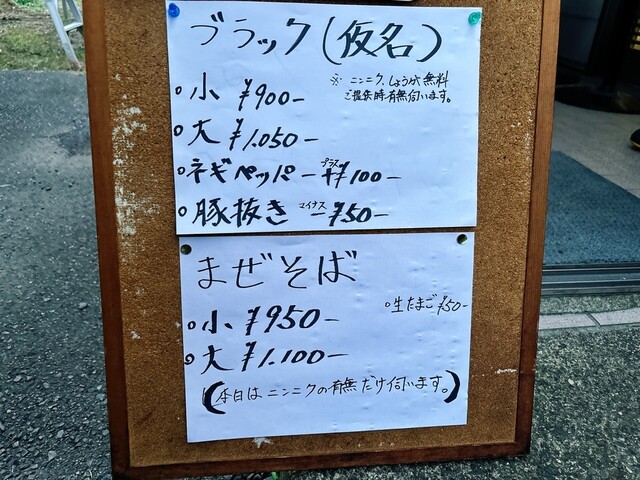 ブラック(仮名)
※ ニンニク、しょうが無料
ご提供時有無伺います。
○小 ¥900-
○大 ¥1.050-
○ネギペッパー プラス+¥100-
○豚抜き マイナス-¥50-
まぜそば
○小 ¥950-
○生たまご ¥50-
○大 ¥1.100-
(本日はニンニクの有無だけ伺います。)